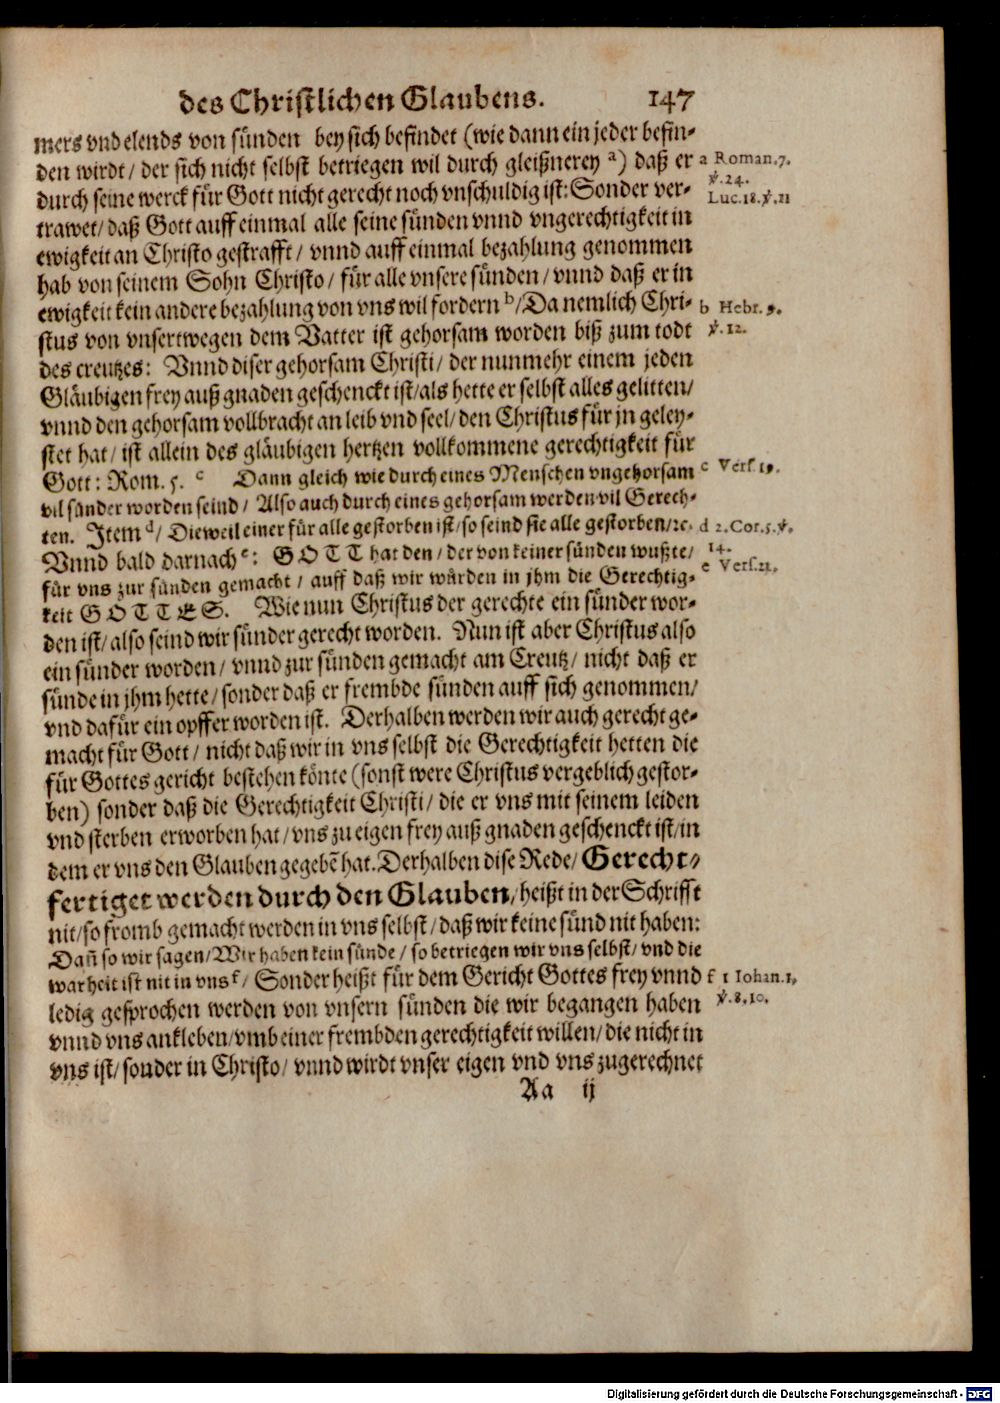 des Christlichen Glaubens. 147
mers vnd elends von sünden bey sich befindet (wie dann ein jeder befin-
den wirdt/ der sich nicht selbst betriegen wil durch gleißnerey a) daß er
a Roman. 7.
℣. 24.
durch seine werck für Gott nicht gerecht noch vnschuldig ist: Sonder ver-
Luc. 18. ℣. 21
trawet/ daß Gott auff einmal alle seine sünden vnnd vngerechtigkeit in
ewigkeit an Christo gestrafft/ vnnd auff einmal bezahlung genommen
hab von seinem Sohn Christo/ für alle vnsere sünden/ vnnd daß er in
ewigkeit kein andere bezahlung von vns wil fordern b/ Da nemlich Chri-
b Hebr. 9.
℣. 12.
stus von vnsertwegen dem Vatter ist gehorsam worden biß zum todt
des creutzes: Vnnd diser gehorsam Christi/ der nunmehr einem jeden
Gläubigen frey auß gnaden geschenckt ist/ als hette er selbst alles gelitten/
vnnd den gehorsam vollbracht an leib vnd seel/ den Christus für jn geley-
stet hat/ ist allein des gläubigen hertzen vollkommene gerechtigkeit für
Gott: Rom. 5. c Dann gleich wie durch eines Menschen vngehorsam
c Vers. 19.
vil sünder worden seind/ Also auch durch eines gehorsam werden vil Gerech-
ten. Item d/ Dieweil einer für alle gestorben ist/ so seind sie alle gestorben/ ꝛc.
d 2. Cor. 5. ℣.
14.
Vnnd bald darnach e: GOTT hat den/ der von keiner sünden wußte/
e Vers. 21.
für vns zur sünden gemacht/ auff daß wir würden in jhm die Gerechtig-
keit GOTTES. Wie nun Christus der gerechte ein sünder wor-
den ist/ also seind wir sünder gerecht worden. Nun ist aber Christus also
ein sünder worden/ vnnd zur sünden gemacht am Creutz/ nicht daß er
sünde in jhm hette/ sonder daß er frembde sünden auff sich genommen/
vnd dafür ein opffer worden ist. Derhalben werden wir auch gerecht ge-
macht für Gott/ nicht daß wir in vns selbst die Gerechtigkeit hetten die
für Gottes gericht bestehen könte (sonst were Christus vergeblich gestor-
ben) sonder daß die Gerechtigkeit Christi/ die er vns mit seinem leiden
vnd sterben erworben hat/ vns zu eigen frey auß gnaden geschenckt ist/ in
dem er vns den Glauben gegebē hat. Derhalben dise Rede/ Gerecht-
fertiget werden durch den Glauben/ heißt in der Schrifft
nit/ so fromb gemacht werden in vns selbst/ daß wir keine sünd nit haben:
Dañ so wir sagen/ Wir haben kein sünde/ so betriegen wir vns selbst/ vnd die
warheit ist nit in vns f/ Sonder heißt für dem Gericht Gottes frey vnnd
f 1 Iohan. 1,
℣. 8. 10.
ledig gesprochen werden von vnsern sünden die wir begangen haben
vnnd vns ankleben/ vmb einer frembden gerechtigkeit willen/ die nicht in
vns ist/ sonder in Christo/ vnnd wirdt vnser eigen vnd vns zugerechnet
Aa ij
Digitalisierung gefördert durch die Deutsche Forschungsgemeinschaft - DFG